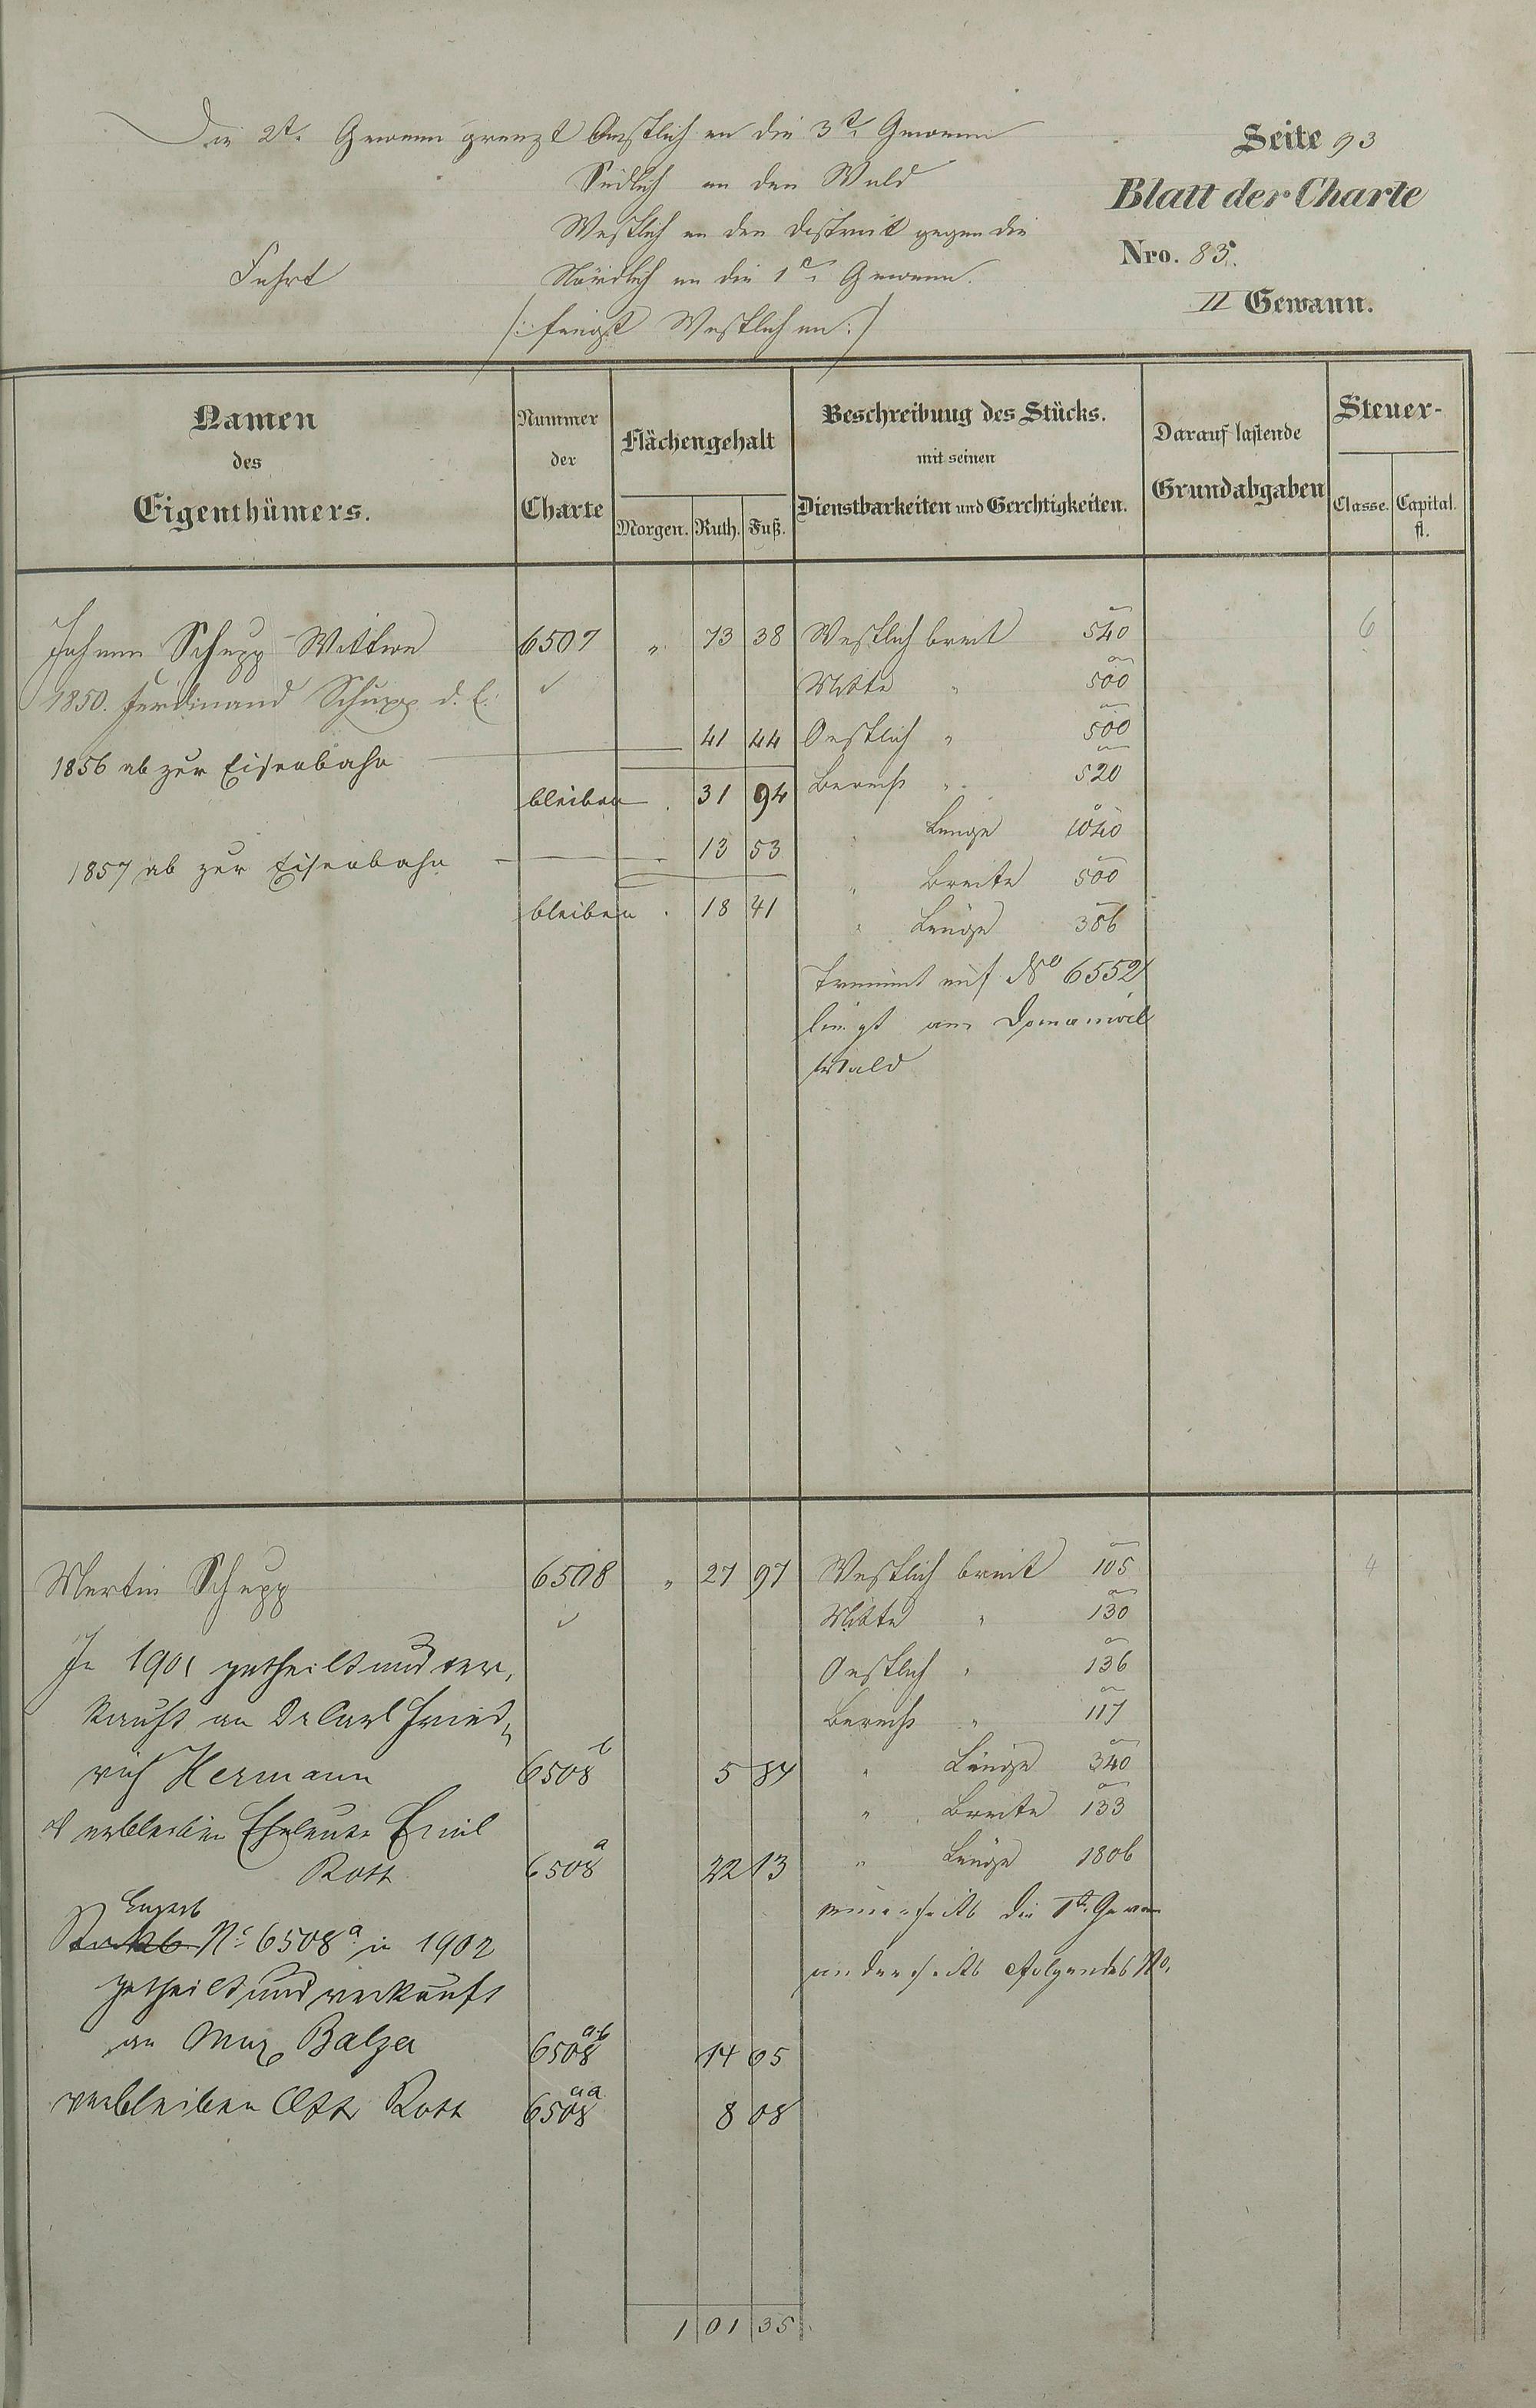 Die 2te Gewann grenzt Oestlich an die 3te Gewann
Südlich an den Wald
Westlich an den District gegen die
Fuhrt
Nördlich an die 1te Gewann.
/: fängt Westlich an :/
Seite 93
Blatt der Charte
Nro. 85.
II Gewann.
Namen
des
Eigenthümers.
Nummer
der
Charte
Flächengehalt
Morgen. Ruth. Fuß.
Beschreibung des Stücks.
mit seinen
Dienstbarkeiten und Gerchtigkeiten.
Darauf lastende
Grundabgaben
Steuer-
Classe. Capital.
fl.
Johann Schupp Wittwe 6507 " 73 38 Westlich breit 540 6
1850. Ferdinand Schupp d. E. Mitte " 500
41 44 Oestlich " 500
1856 ab zur Eisenbahn
bleiben . 31 94 Berechs " 520
" Länge 1040
1857 ab zur Eisenbahn 13 53
" Breite 500
bleiben . 18 41
" Länge 386
auf No 6552
liegt am Domanial
Wald
Martin Schupp 6508 " 27 97 Westlich breit 105 4
Mitte " 130
In 1901 getheilt und ver, Oestlich " 136
kauft an Dr Carl Fried, Berechs " 117
rich Hermann 6508b 5 84 " Länge 340
verbleiben Eheleute Emil " Breite 133
Roth 6508a 22 13 " Länge 1806
einerseits die 1te Gewan
No 6508a in 1902
anderseits folgendes No.
getheilt und verkauft
an Max Balzer 6508ab 14 05
verbleiben Roth 6508aa 8 08
1 01 35